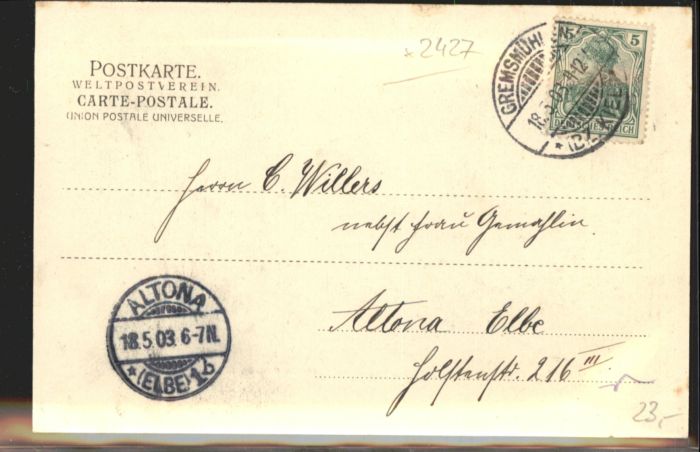 x 2427
POSTKARTE.
WELTPOSTVEREIN.
CARTE-POSTALE.
UNION POSTALE UNIVERSELLE.
5
GREMSMÜHLEN
18.5.03
*(BZ. KIEL)
Herrn C. Willers
nebst Frau Gemahlin.
Altona Elbe
Holstenstr. 216 III
ALTONA
18.5.03. 6-7N.
*(ELBE)1b
23,-